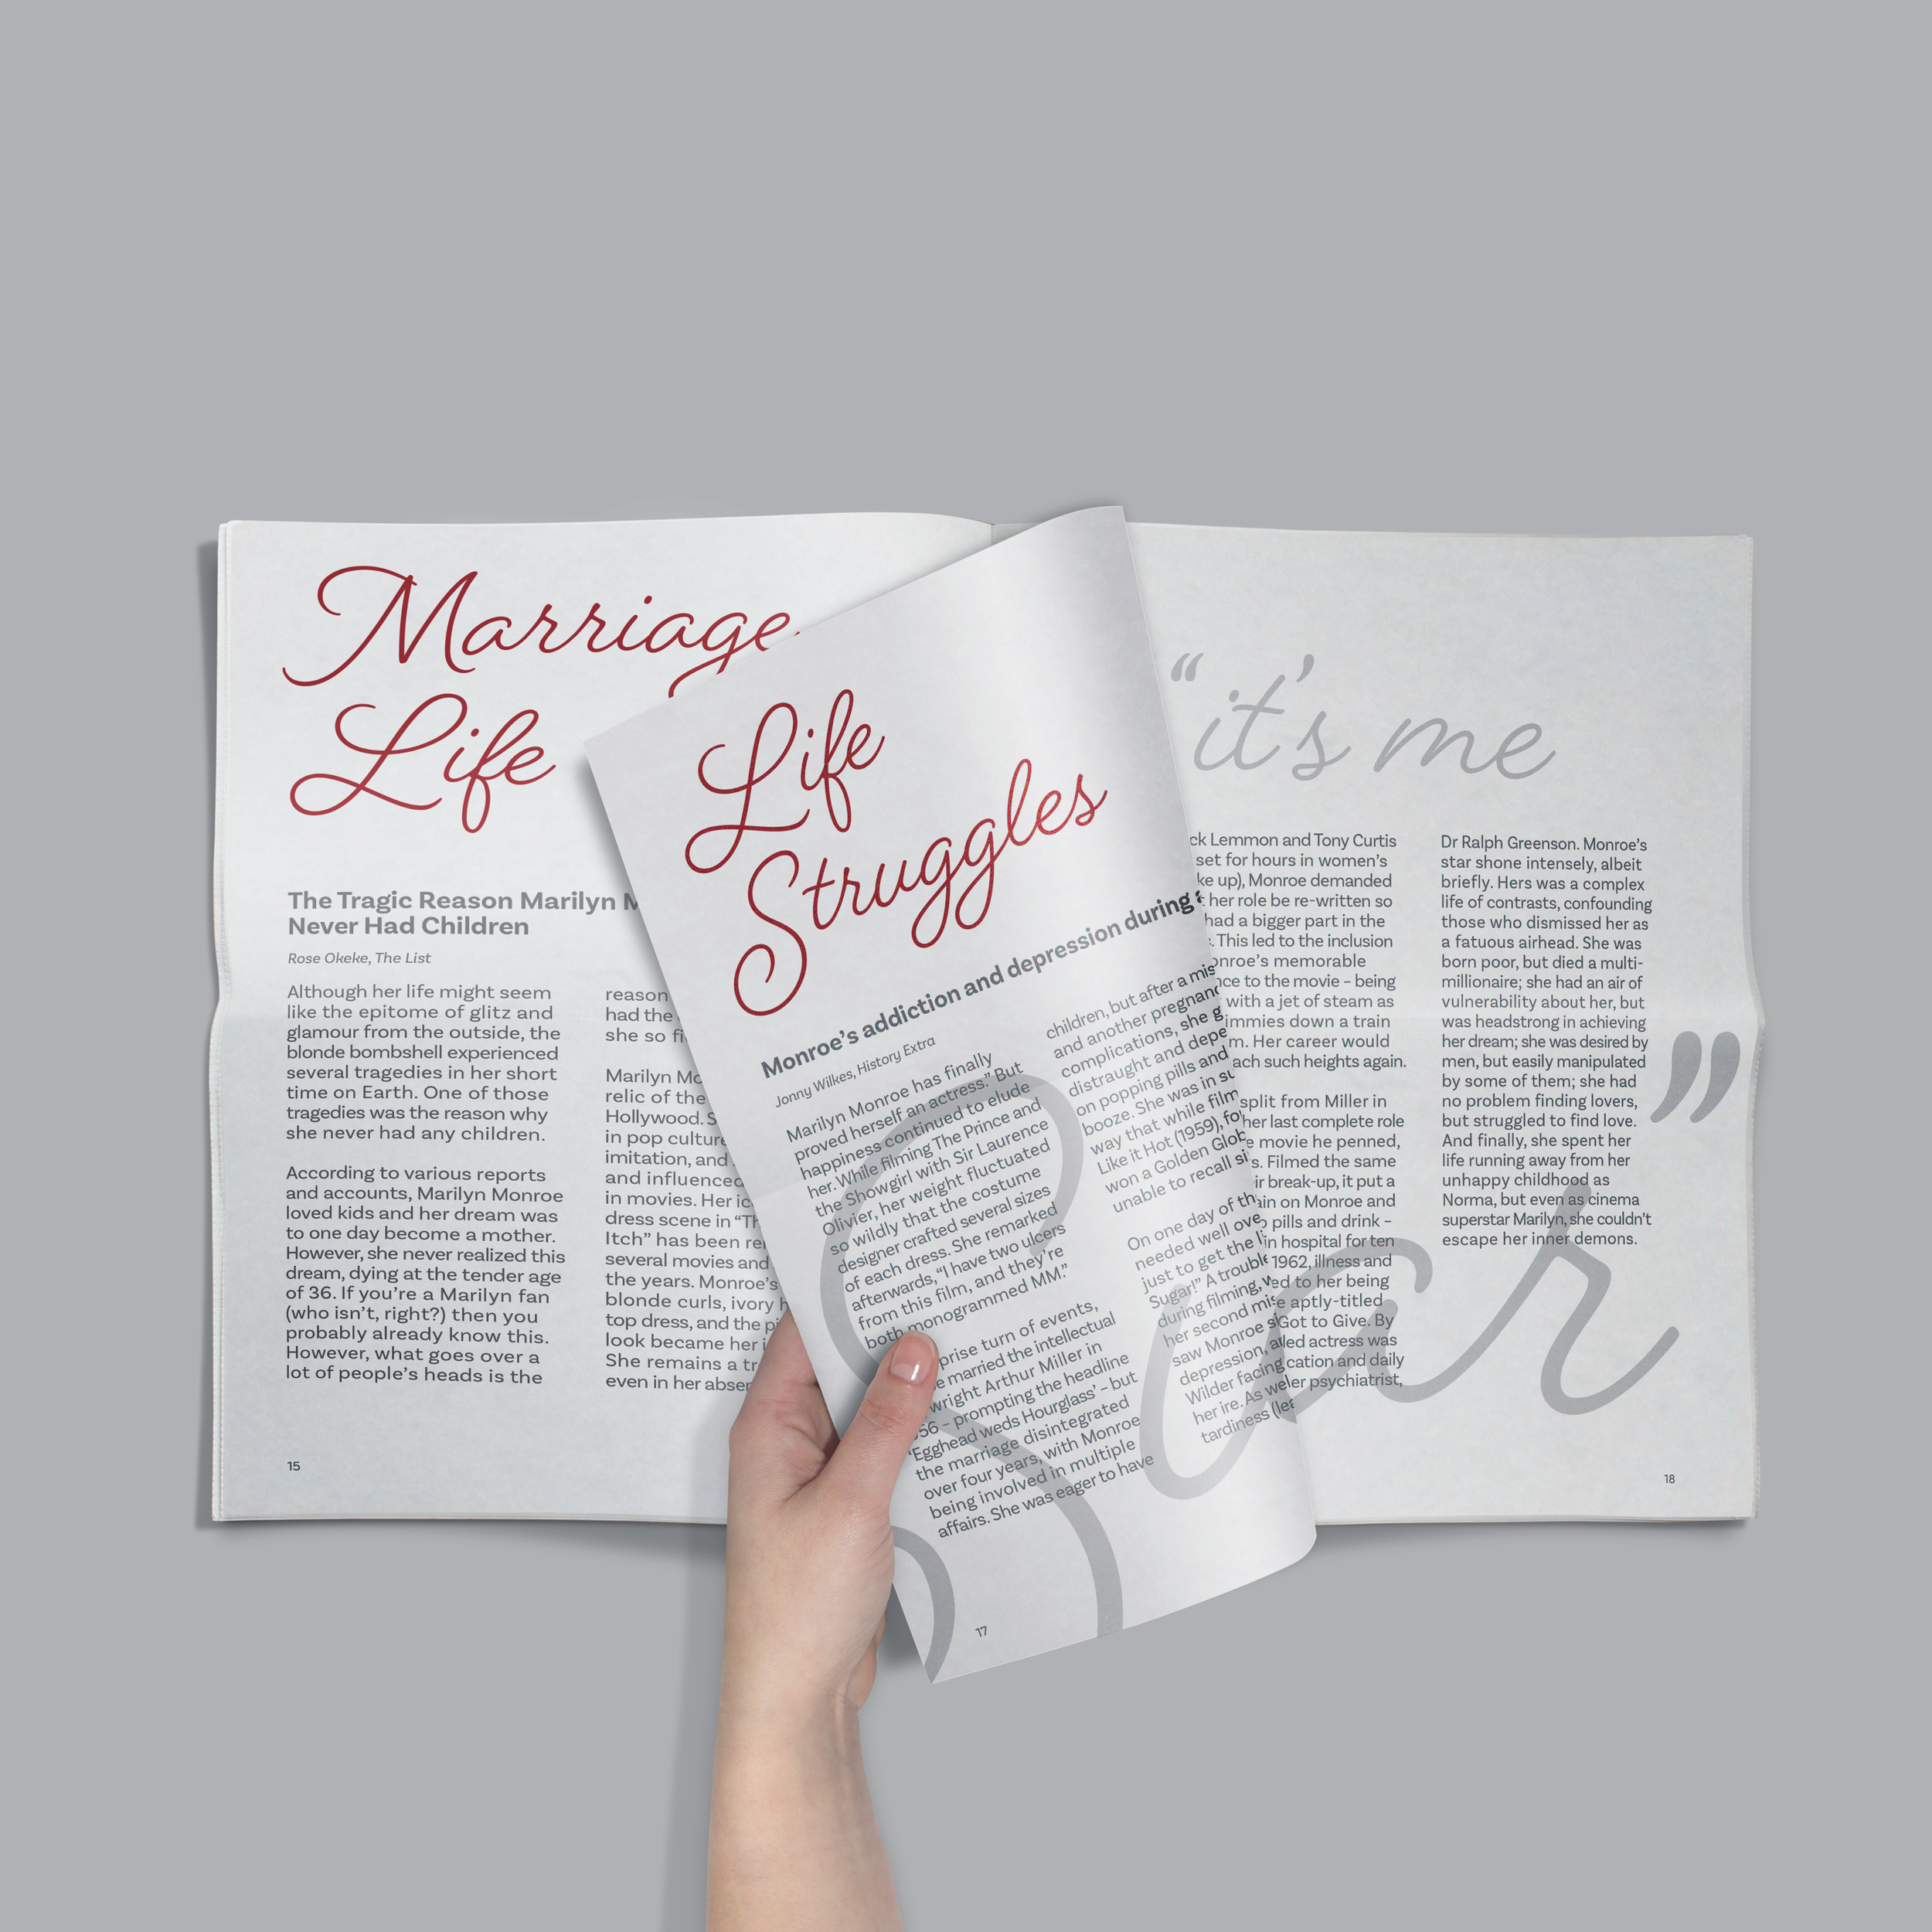 Marriage
Life
The Tragic Reason Marilyn
Never Had Children
Rose Okeke, The List
Although her life might seem
like the epitome of glitz and
glamour from the outside, the
blonde bombshell experienced
several tragedies in her short
time on Earth. One of those
tragedies was the reason why
she never had any children.
According to various reports
and accounts, Marilyn Monroe
loved kids and her dream was
to one day become a mother.
However, she never realized this
dream, dying at the tender age
of 36. If you're a Marilyn fan
(who isn't, right?) then you
probably already know this.
However, what goes over a
lot of people's heads is the
15
reason
had the
she so
Marilyn
relic of the
Hollywood.
in pop culture
imitation, and
and influenced
in movies. Her
dress scene in
Itch" has been
several movies and
the years. Monroe's
blonde curls, ivory
top dress, and the
look became her
She remains a
even in her
Life
Struggles
Monroe's addiction and depression during
Jonny Wilkes, History Extra
Marilyn Monroe has finally
proved herself an actress." But
happiness continued to elude
her. While filming The Prince and
the Showgirl with Sir Laurence
Olivier, her weight fluctuated
so wildly that the costume
designer crafted several sizes
of each dress. She remarked
afterwards, "I have two ulcers
from this film, and they're
both monogrammed MM."
prise turn of events,
married the intellectual
wright Arthur Miller in
56 – prompting the headline
'Egghead weds Hourglass' – but
the marriage disintegrated
over four years, with Monroe
being involved in multiple
affairs. She was eager to have
17
children, but after a
and another
complications, she
distraught and
on popping pills and
booze. She was in
way that while
Like it Hot (1959),
won a Golden
unable to recall
On one day of
needed well
just to get the
Sugar!" A
during filming,
her second
saw Monroe
depression,
Wilder facing
her ire. As
tardiness
"it's me
Lemmon and Tony Curtis
set for hours in women's
up), Monroe demanded
her role be re-written so
had a bigger part in the
This led to the inclusion
memorable
to the movie – being
with a jet of steam as
down a train
Her career would
such heights again.
split from Miller in
her last complete role
movie he penned,
Filmed the same
break-up, it put a
on Monroe and
pills and drink –
in hospital for ten
1962, illness and
to her being
aptly-titled
Got to Give. By
actress was
and daily
psychiatrist,
Dr Ralph Greenson. Monroe's
star shone intensely, albeit
briefly. Hers was a complex
life of contrasts, confounding
those who dismissed her as
a fatuous airhead. She was
born poor, but died a multi-
millionaire; she had an air of
vulnerability about her, but
was headstrong in achieving
her dream; she was desired by
men, but easily manipulated
by some of them; she had
no problem finding lovers,
but struggled to find love.
And finally, she spent her
life running away from her
unhappy childhood as
Norma, but even as cinema
superstar Marilyn, she couldn't
escape her inner demons.
"
18